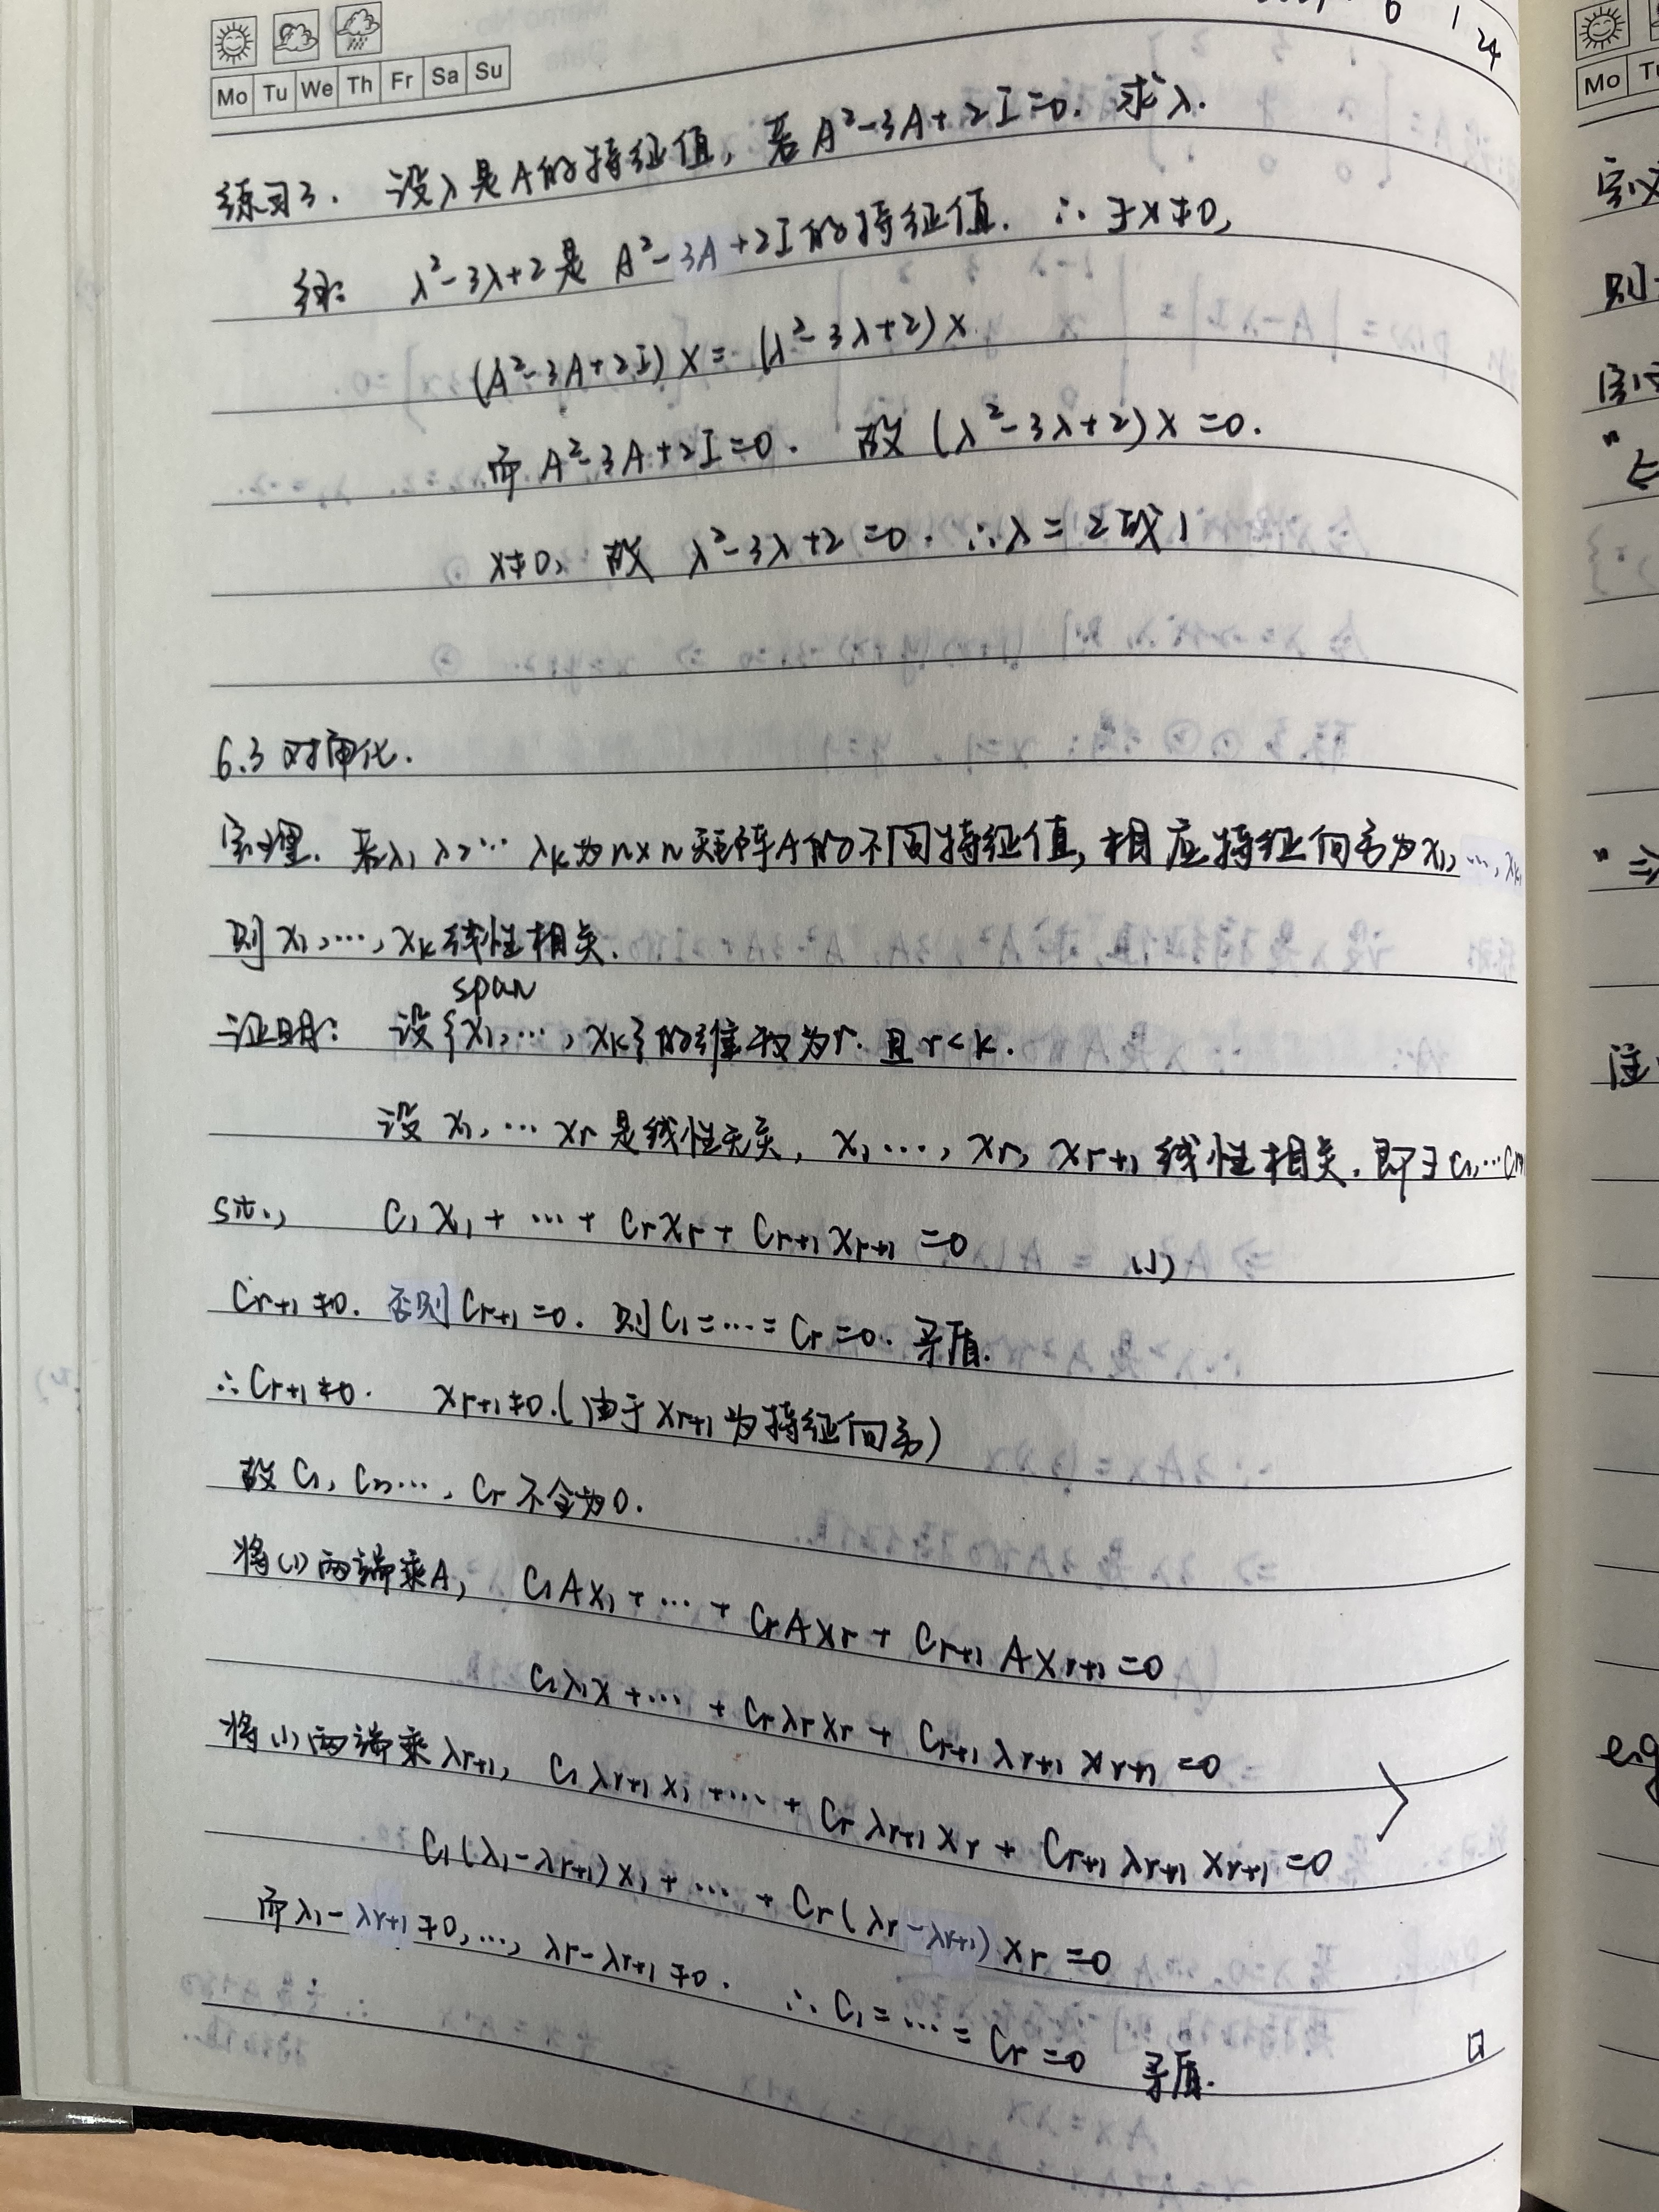 Mo Tu We Th Fr Sa Su
6 1 24
练习3. 设λ是A的特征值, 若A²-3A+2I=0. 求λ.
λ²-3λ+2是 A²-3A+2I的特征值. ∴ ∃x≠0,
(A²-3A+2I)x=(λ²-3λ+2)x
而 A²-3A+2I=0. 故 (λ²-3λ+2)x=0.
x≠0, 故 λ²-3λ+2=0. ∴λ=2或1
6.3 对角化.
定理. 若λ₁ λ₂… λₖ为n×n矩阵A的不同特征值, 相应特征向量为x₁, …, xₖ,
则 x₁,…, xₖ线性相关.
span
证明: 设{x₁,…, xₖ}的维数为r. 且 r<k.
设 x₁, … xᵣ 是线性无关, x₁ …, xᵣ, xᵣ₊₁ 线性相关. 即∃ c₁,…
s.t., c₁x₁+ … + cᵣxᵣ + cᵣ₊₁xᵣ₊₁ =0 (1)
cᵣ₊₁≠0. 否则 cᵣ₊₁=0. 则 c₁=…=cᵣ=0. 矛盾.
∴cᵣ₊₁≠0. xᵣ₊₁≠0.(由于 xᵣ₊₁ 为特征向量)
故 c₁, c₂, …, cᵣ 不全为0.
将(1)两端乘A, c₁Ax₁+ … + cᵣAxᵣ + cᵣ₊₁Axᵣ₊₁=0
c₁λ₁x + … + cᵣλᵣxᵣ + cᵣ₊₁λᵣ₊₁xᵣ₊₁=0
将(1)两端乘λᵣ₊₁, c₁λᵣ₊₁x₁+ … + cᵣλᵣ₊₁xᵣ + cᵣ₊₁λᵣ₊₁xᵣ₊₁=0
c₁(λ₁-λᵣ₊₁)x₁+ … + cᵣ(λᵣ-λᵣ₊₁)xᵣ=0
而 λ₁-λᵣ₊₁≠0, …, λᵣ-λᵣ₊₁≠0. ∴ c₁=…=cᵣ=0 矛盾. □
Mo
则
"⇒
注
e.g